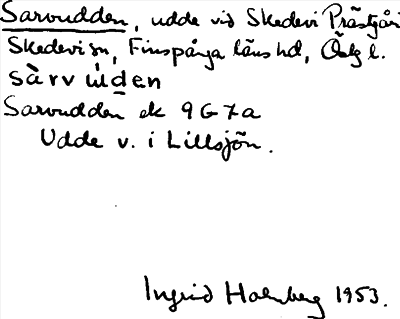 Sarvudden, udde vid Skedevi Prästgår
Skedevi sn, Finspånga läns hd, Östg l.
sàrvúden
Sarvudden ek 9G7a
Udde v. i Lillsjön.
Ingrid Holmberg 1953.